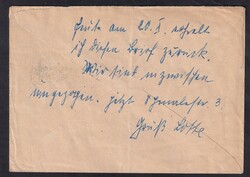 Heute am 20. X. erhielt
ich diesen Brief zurück.
Wir sind inzwischen
umgezogen. jetzt 3.
Gruß Lotte